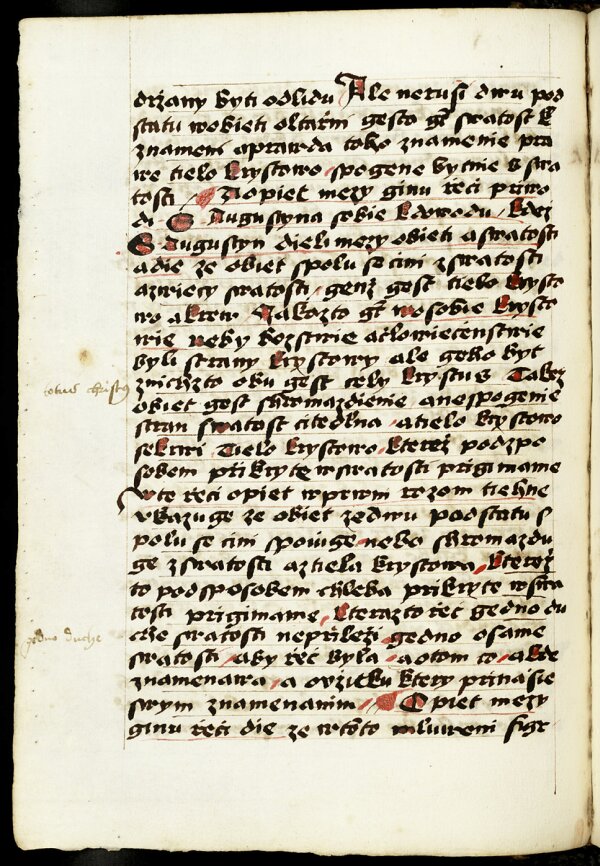 držany byti odlidu Ale nerusi dwu pod
statu wobieti oltařni gesto gt swatost k
znameni aprawda toho znamenie pra
we tielo krystowo spogene bytnie w swa
tosti A opiet mezy ginu řeci přiwo
di S Augustyna sobie kdowodu kdež
S Augustyn dieli mezy obieti a swatosti
a die že obiet spolu se cini z swatosti
azwiecy swatosti genž gest tielo krysto
wo a krew Jakožto gt w osobie krysto
wie neby božstwie ačlowiečenstwie
byli strany krystowy ale geho byt
znichžto obu gest cely krystus Takež
obiet gest shromazdienie anespogenie
stran swatost citedlna a tielo krystowo
se krwi Tielo krystowo kterež pod zpo
sobem přikryte w swatosti prigimame
w te řeci opiet w prwni rozom tiehne
vkazuge ze obiet ze dwu podstatu s
polu se cini spoiuge nebo shromazdu
ge z swatosti a z tiela krystowa kterež
to pod sposobem chleba prikryte w swa
tosti prigimame kterazto řec gedno du
che swatosti neprileži gedno o same
swatosti aby řec byla a o tom co a kde
znamenawa a o vžitku ktery prinasie
swym znamenanim Opiet mezy
ginu řeci die ze w tomto mluweni figr
totus christus
gedno duche